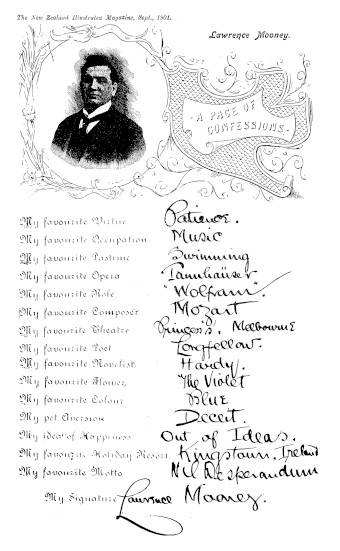 The New Zealand Illustrated Magazine, Sept., 1901.
Lawrence Mooney.
A PAGE OF
CONFESSIONS.
My favourite Virtue Patience.
My favourite Occupation Music
My favourite Pastime Swimming
My favourite Opera Tannhaüser
My favourite Role "Wolfram".
My favourite Composer Mozart
My favourite Theatre Princess's, Melbourne
My favourite Poet Longfellow.
My favourite Novelist Hardy.
My favourite Flower The Violet
My favourite Colour Blue
My pet Aversion Deceit.
My idea of Happiness Out of Ideas.
My favourite Holiday Resort Kingstown, Ireland
My favourite Motto Nil Desperandum
My Signature Lawrence Mooney.